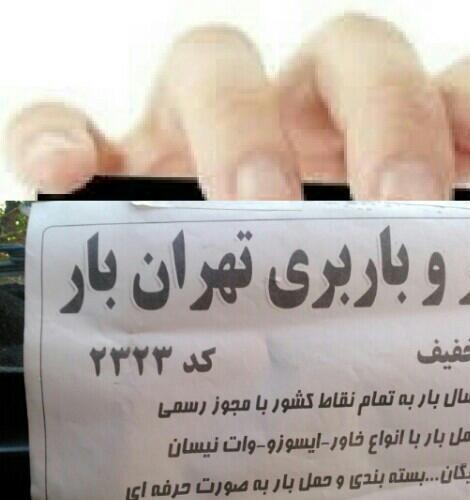 و باربری تهران بار
کد ۲۳۲۳
بار به تمام نقاط کشور با مجوز رسمی
بار با انواع خاور-ایسوزو-وات نیسان
بسته بندی و حمل بار به صورت حرفه ای